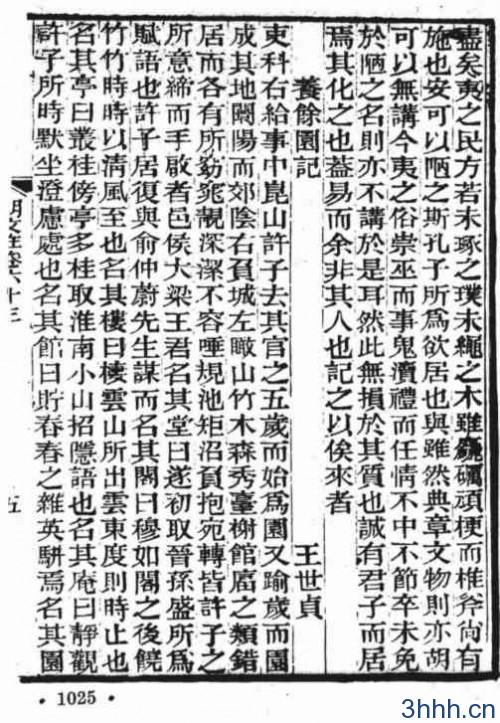 盡矣夷之民方若未琢之璞未繩之木雖麤礪頑梗而椎斧尚有
施也安可以陋之斯孔子所爲欲居也與雖然典章文物則亦胡
可以無講今夷之俗崇巫而事鬼瀆禮而任情不中不節卒未免
於陋之名則亦不講於是耳然此無損於其質也誠有君子而居
焉其化之也蓋易而余非其人也記之以俟來者
養餘園記 王世貞
吏科右給事中崑山許子去其官之五歲而始爲園又踰歲而園
成其地闕陽而郊陰右負城左瞰山竹木森秀臺榭館廇之類錯
居而各有所窈窕靚深潔不容唾規池矩沼負抱宛轉皆許子之
所意締而手啟者邑侯大梁王君名其堂曰遂初取晉孫盛所爲
賦語也許子居復與俞仲蔚先生謀而名其閣曰穆如閣之後饒
竹竹時時以清風至也名其樓曰棲雲山所出雲東度則時止也
名其亭曰叢桂傍亭多桂取淮南小山招隱語也名其庵曰靜觀
許子所時默坐澄慮處也名其館曰貯春春之雜英駢焉名其園
明文在卷六十三
五
• 1025 •
3hhh.cn